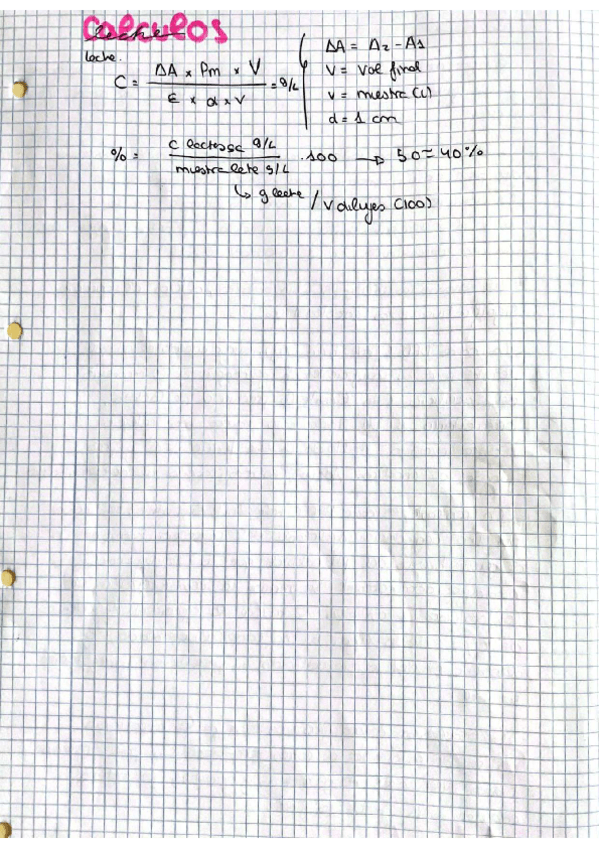 Calculos
Leche.
C = ΔA × Pm × V / ε × d × v = g/L
ΔA = A2 - A1
V = Vol final
v = muestra (L)
d = 1 cm
% = C lactosa g/L / muestra leche g/L · 100 → 50 = 40%
↳ g leche / V diluyes (100)